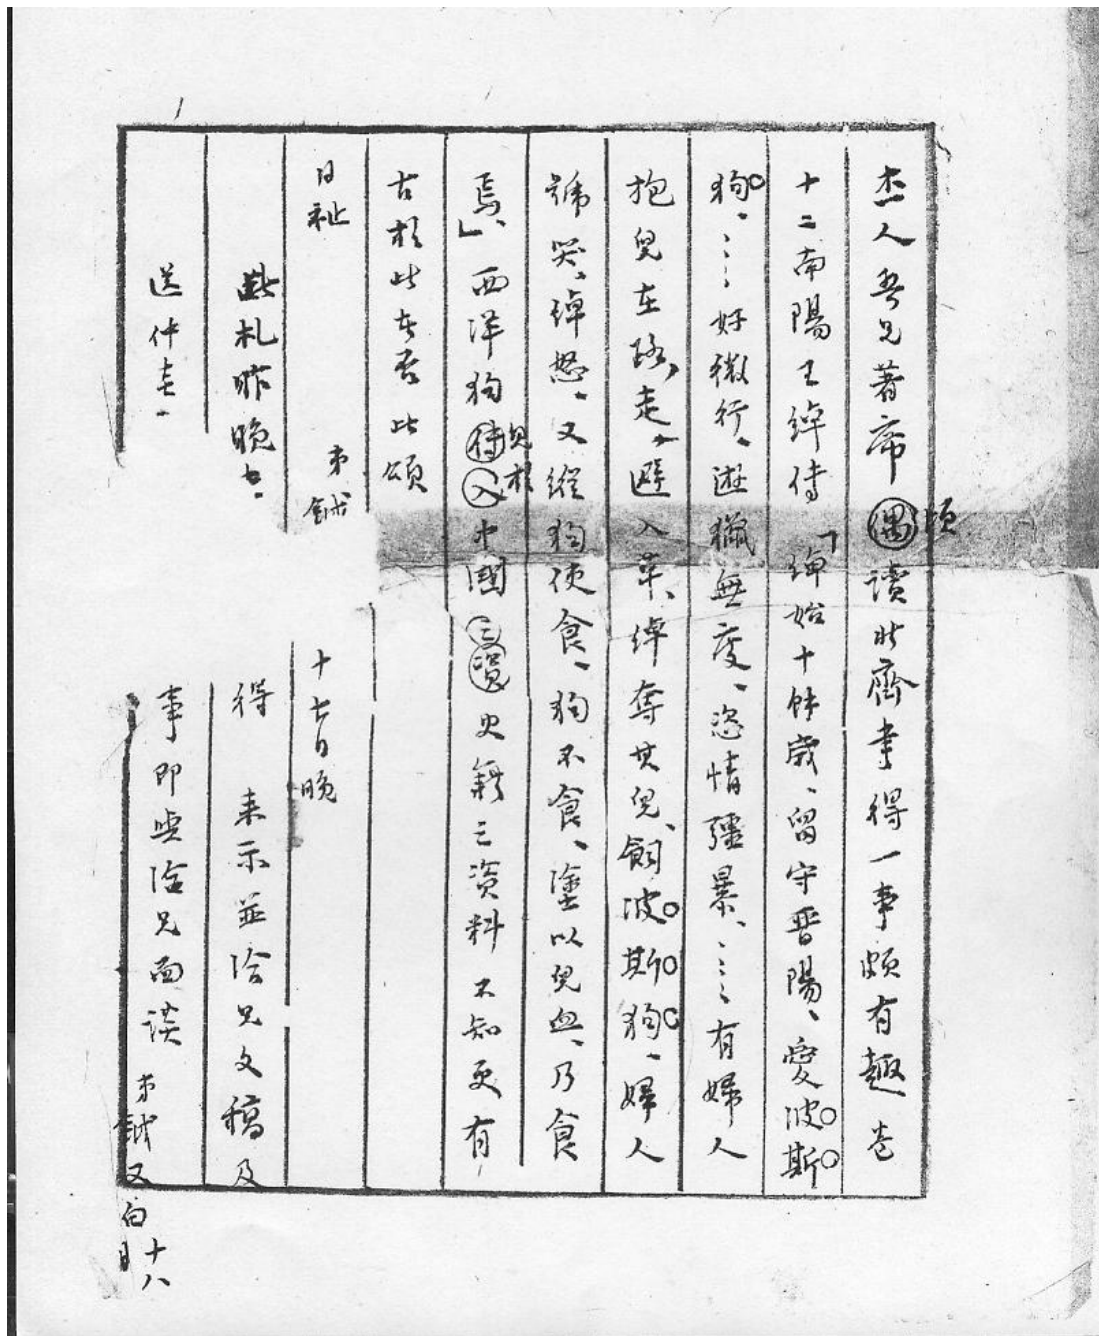 杰人吾兄著席偶頃讀北齊書得一事頗有趣卷
十二南陽王綽傳「綽始十餘歲、留守晉陽、愛波斯
狗、……好微行、遊獵無度、恣情彊暴、……有婦人
抱兒在路、走避入草、綽奪其兒、飼波斯狗、婦人
號哭、綽怒、又縱狗使食、狗不食、塗以兒血、乃食
焉、」西洋狗傳入見於中國之資史籍之資料不知更有
古於此者否此頌
日祉
弟鉞 十七日晚
此札昨晚 得 来示並洽兄文稿及
送仲 事即與洽兄面談
弟鉞又白 十八日